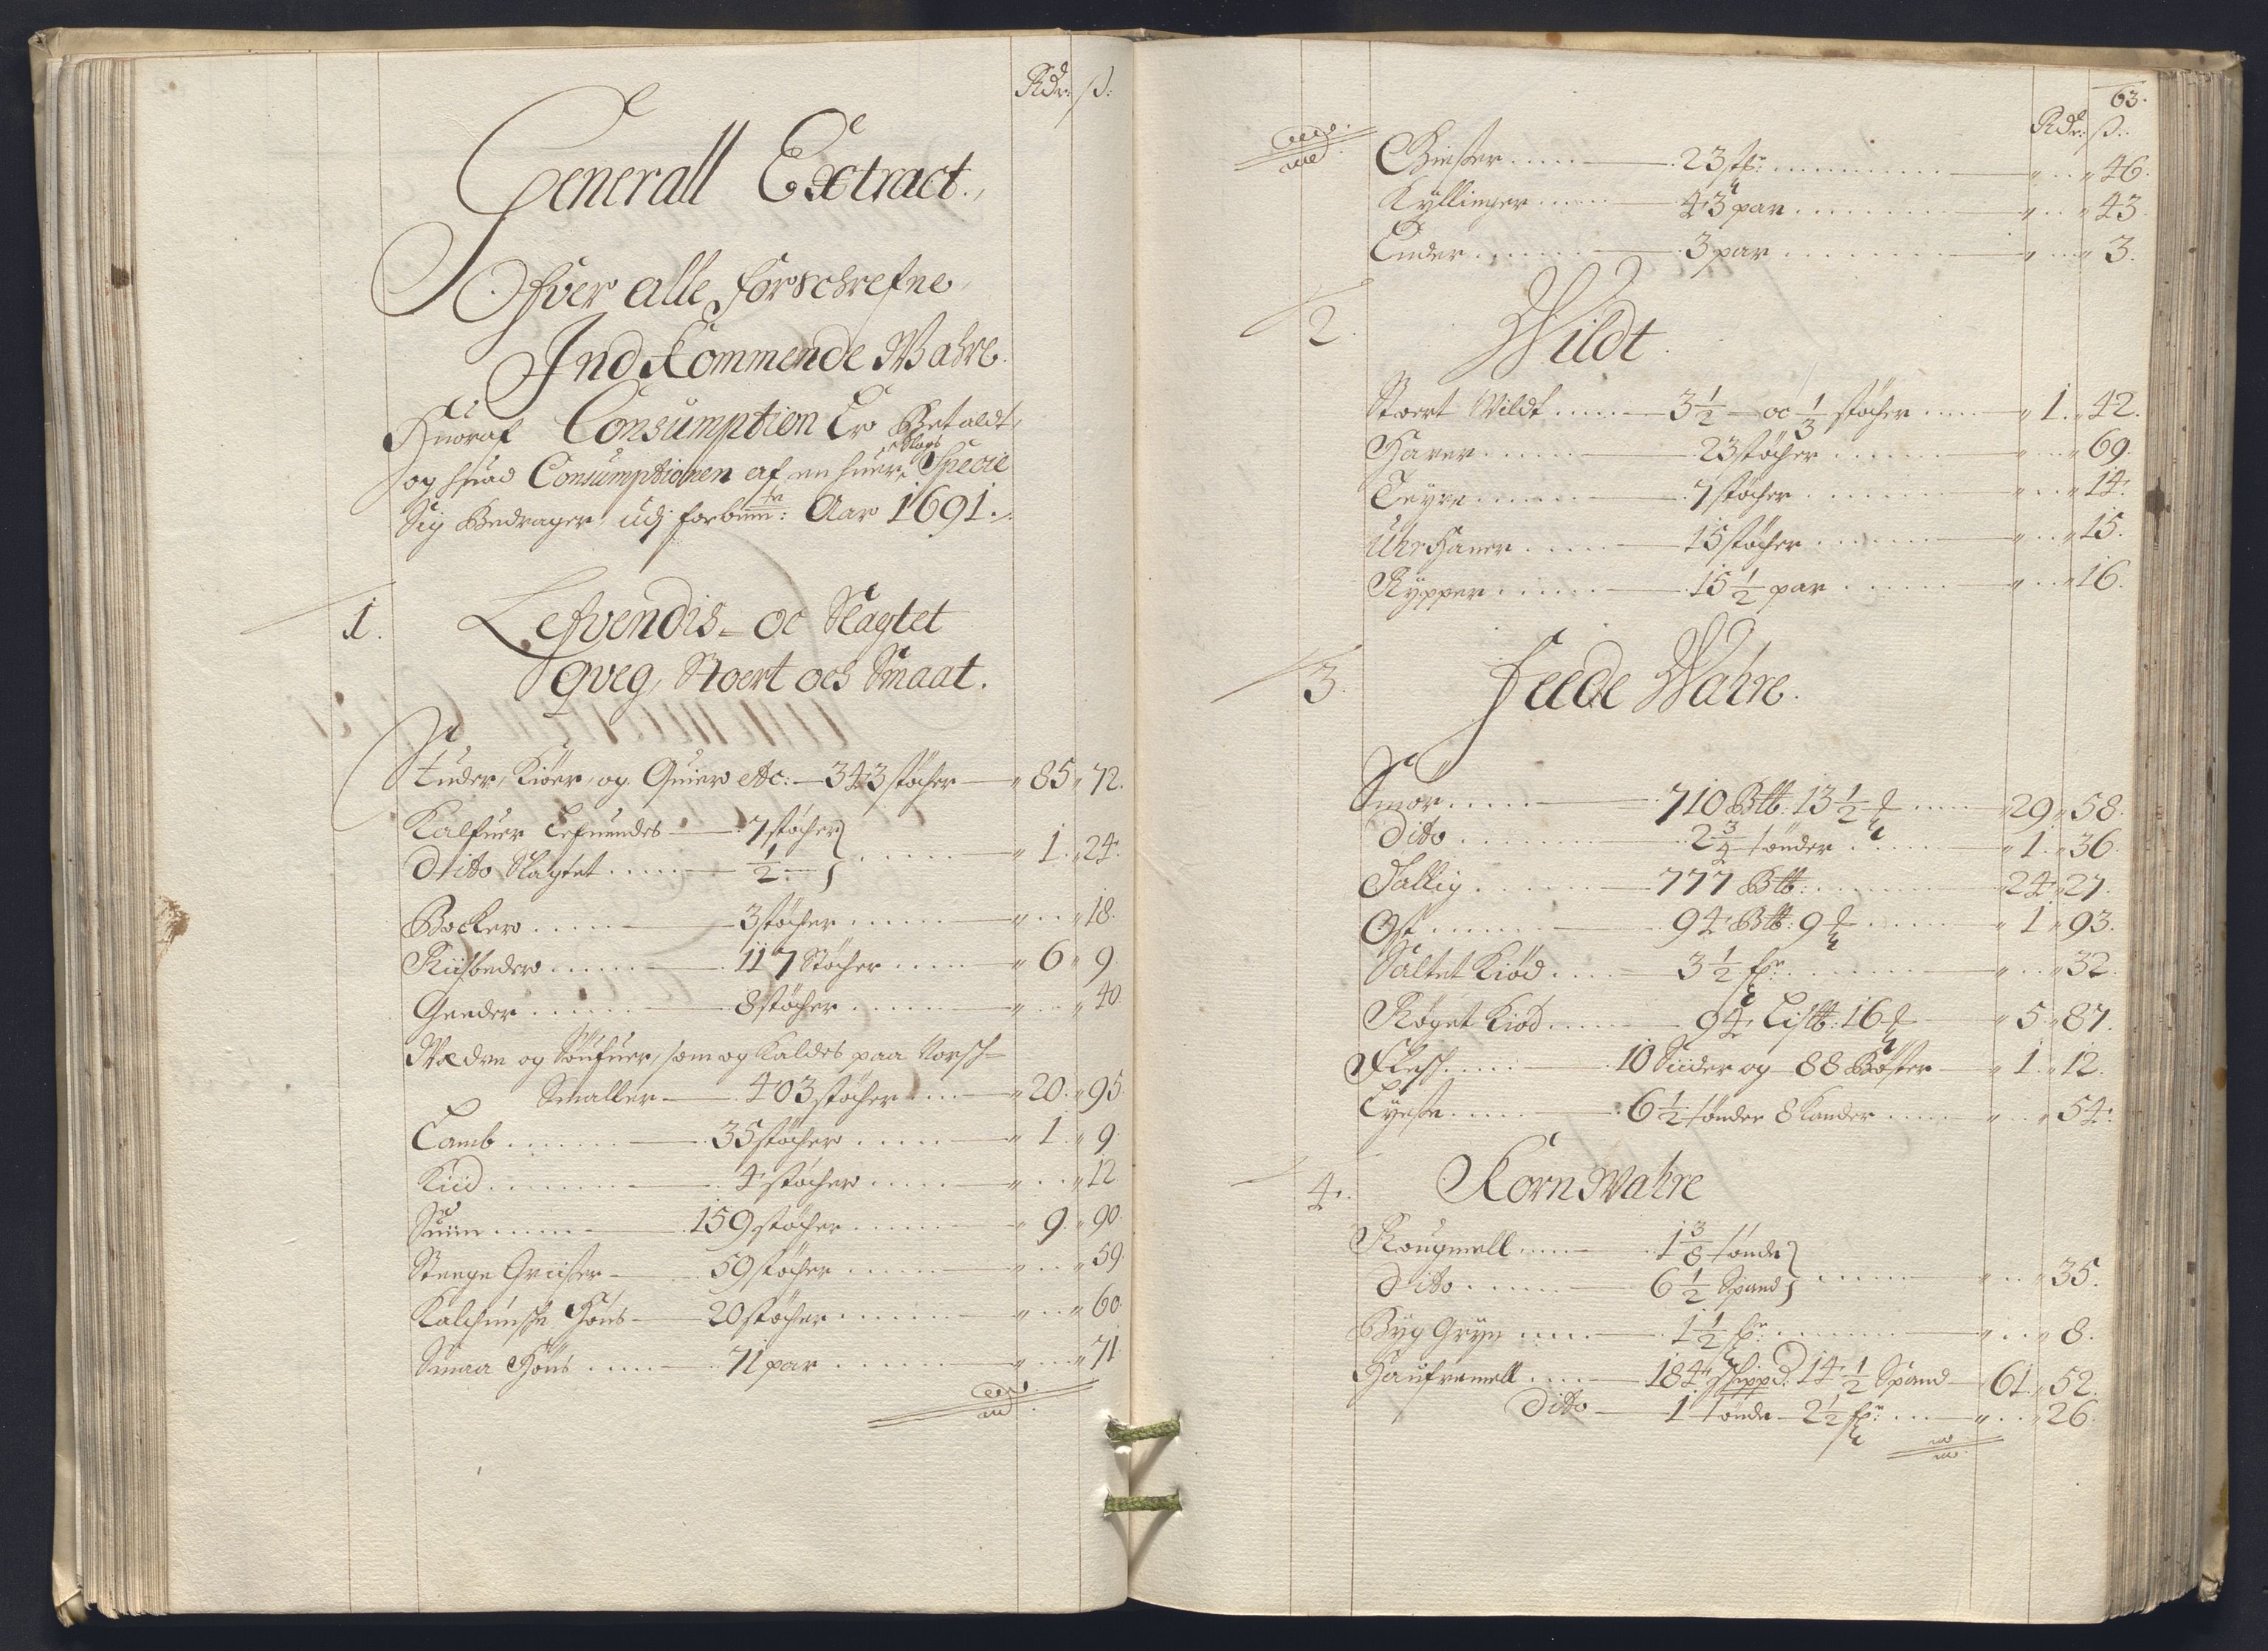 Rdr: ß:
Generall Extract.,
Ofver alle forschrefne
Ind Kommende Wahre.
Huoraf Consumption Er Betaldt,
og huad Consumptionen af en huer Slags Specie
Sig Bedrager udj forbem:te Aar 1691.
1. Lefvendis oc Slagtet
qveg, Stoert och Smaat.
Studer, Kiöer, og Quier etc: 343 stöcher 85 72.
Kalfuer Lefuendes 7 stöcher
Ditto Slagtet 1/2 1. 24.
Bocker 3 stöcher 18.
Riisbeder 117 Stöcher 6 9
Geeder 8 stöcher 40
Wædre og Söufuer, som og Kaldes paa Norsch
Smaller 403 stöcher 20. 95.
Lamb 35 stöcher 1. 9
Kiid 4 stöcher 12
Suiin 159 stöcher 9. 90.
Steege Griiser 59 stöcher 59.
Kalchunsche Höns 20 stöcher 60.
Smaa Höns 71 par 71.
63.
Rdr: ß:
Giesser 23 st: 46.
Kyllinger 43 par 43.
Ender 3 par 3.
2. Wildt.
Stoert Wildt 3 1/2 oc 1/3 stöcher 1. 42.
Harer 23 stöcher 69.
Teyre 7 stöcher 14.
Uhrhaner 15 stöcher 15.
Rypper 15 1/2 par 16.
3. Feede Wahre.
Smör 710 Bllb: 13 1/2 29 58.
Dito 2 3/4 tönder 1. 36.
Tallig 777 Bllb: 24 27.
Ost 94 Bllb: 9 1 93.
Saltet Kiöd 3 1/2 32.
Röget Kiöd 94 Lisllb: 16 5 87.
Flesch 10 Siider og 88 Böster 1. 12.
Lysse 6 1/2 tönder 8 Kander 54.
4. Korn Wahre
Rougmell 1 3/8 tönde
Dito 6 1/2 Spand 35.
Byg Gryn 1 1/2 8.
Haufremell 184 schippd: 14 1/2 Spand 61. 52.
Dito 1 tönde 2 1/2 26.